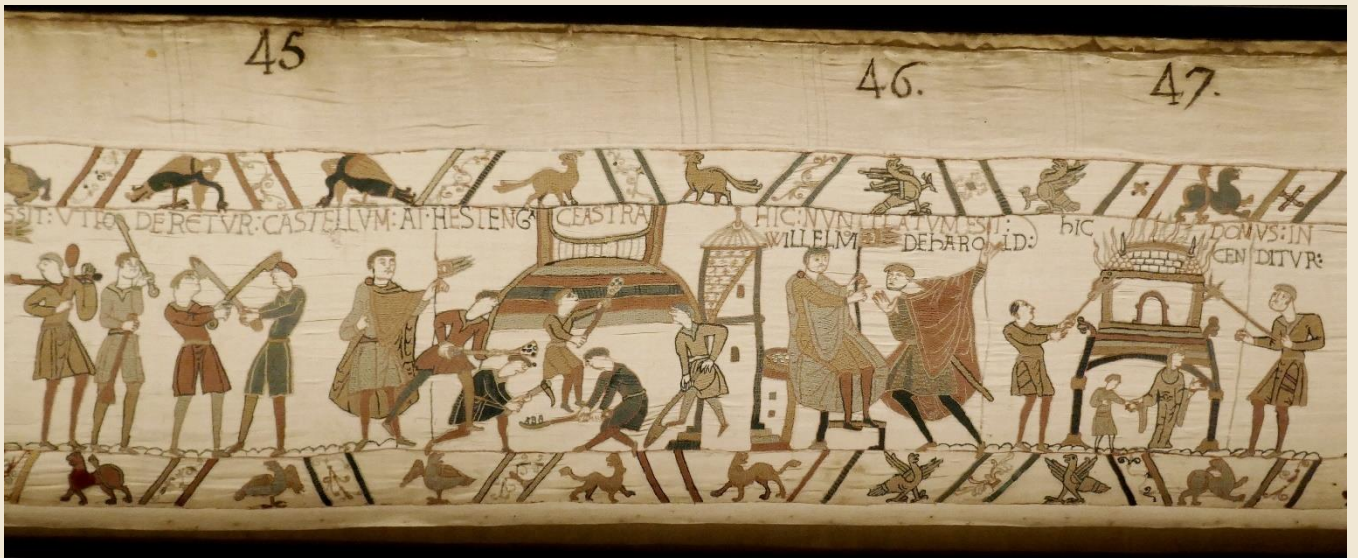 45
46.
47.
SSIT: VT FODERETVR: CASTELLVM: AT HESTENG CEASTRA
HIC: NVNTIATVM EST:
WILLELM DE hAROLD:
hIC DOMVS: IN
CENDITVR: